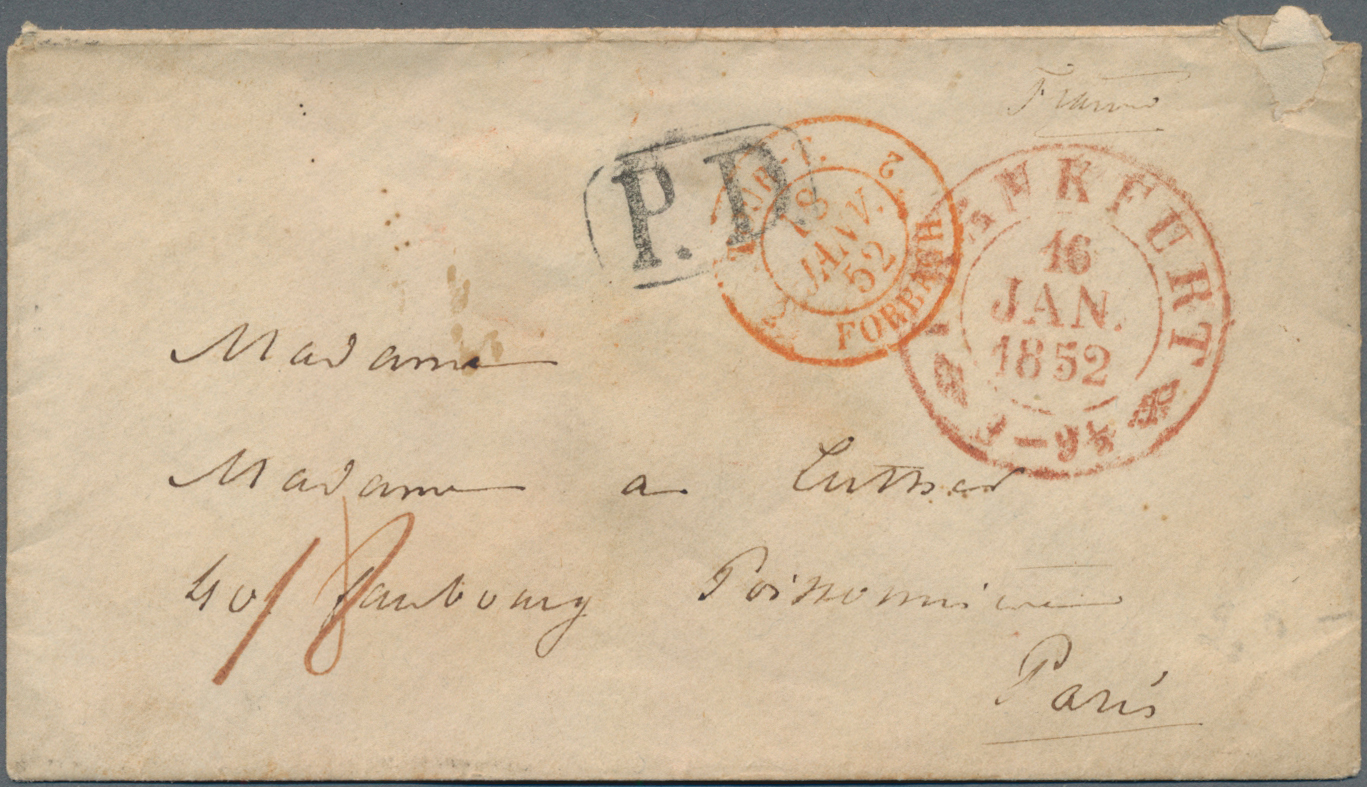 Franco
P.D.
2 TOUR-T. 2
18
JANV.
52
FORBACH
FRANKFURT
16
JAN.
1852
Madame
Madame a Luther
40 faubourg Poissonniere
18
Paris